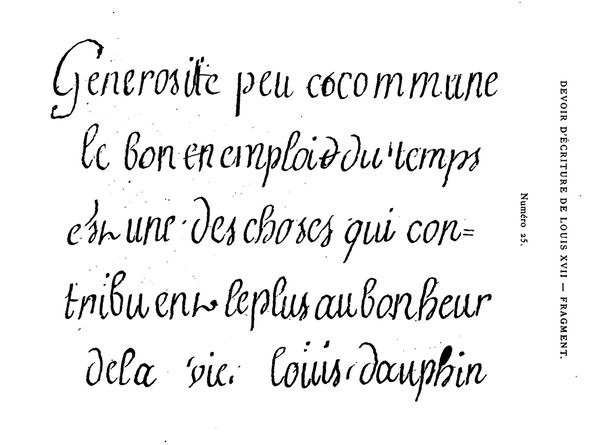 Generosite peu cocommune
le bon en emploi du temps
est une des choses qui con=
tribuent leplus aubonheur
dela vie. louis dauphin
Numéro 25.
DEVOIR D'ÉCRITURE DE LOUIS XVII — FRAGMENT.